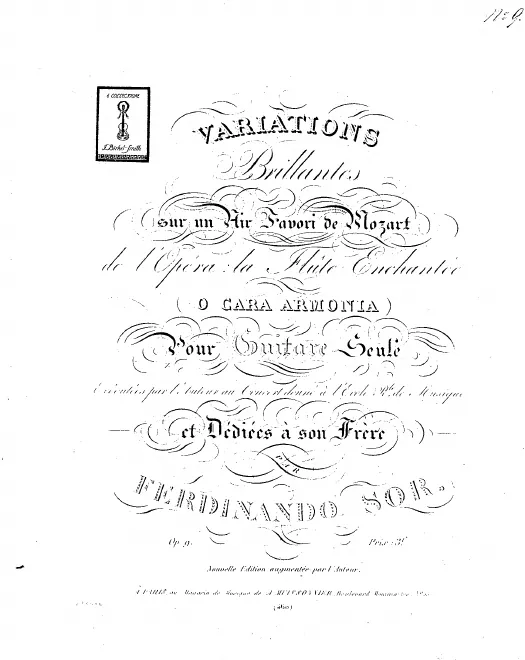 No 9.
È COLLECTIONE
VARIATIONS
Brillantes
sur un Air Favori de Mozart
de l'Opéra : la Flûte Enchantée
( O CARA ARMONIA )
Pour Guitare Seule
Exécutées par l'Auteur au Concert donné à l'Ecole Rle. de Musique
et Dédiées à son Frère
PAR
FERDINANDO SOR.
Op. 9. Prix: 3f
Nouvelle Edition augmentée par l'Auteur.
À PARIS, au Magasin de Musique de A. MEISSONNIER, Boulevard
(460)